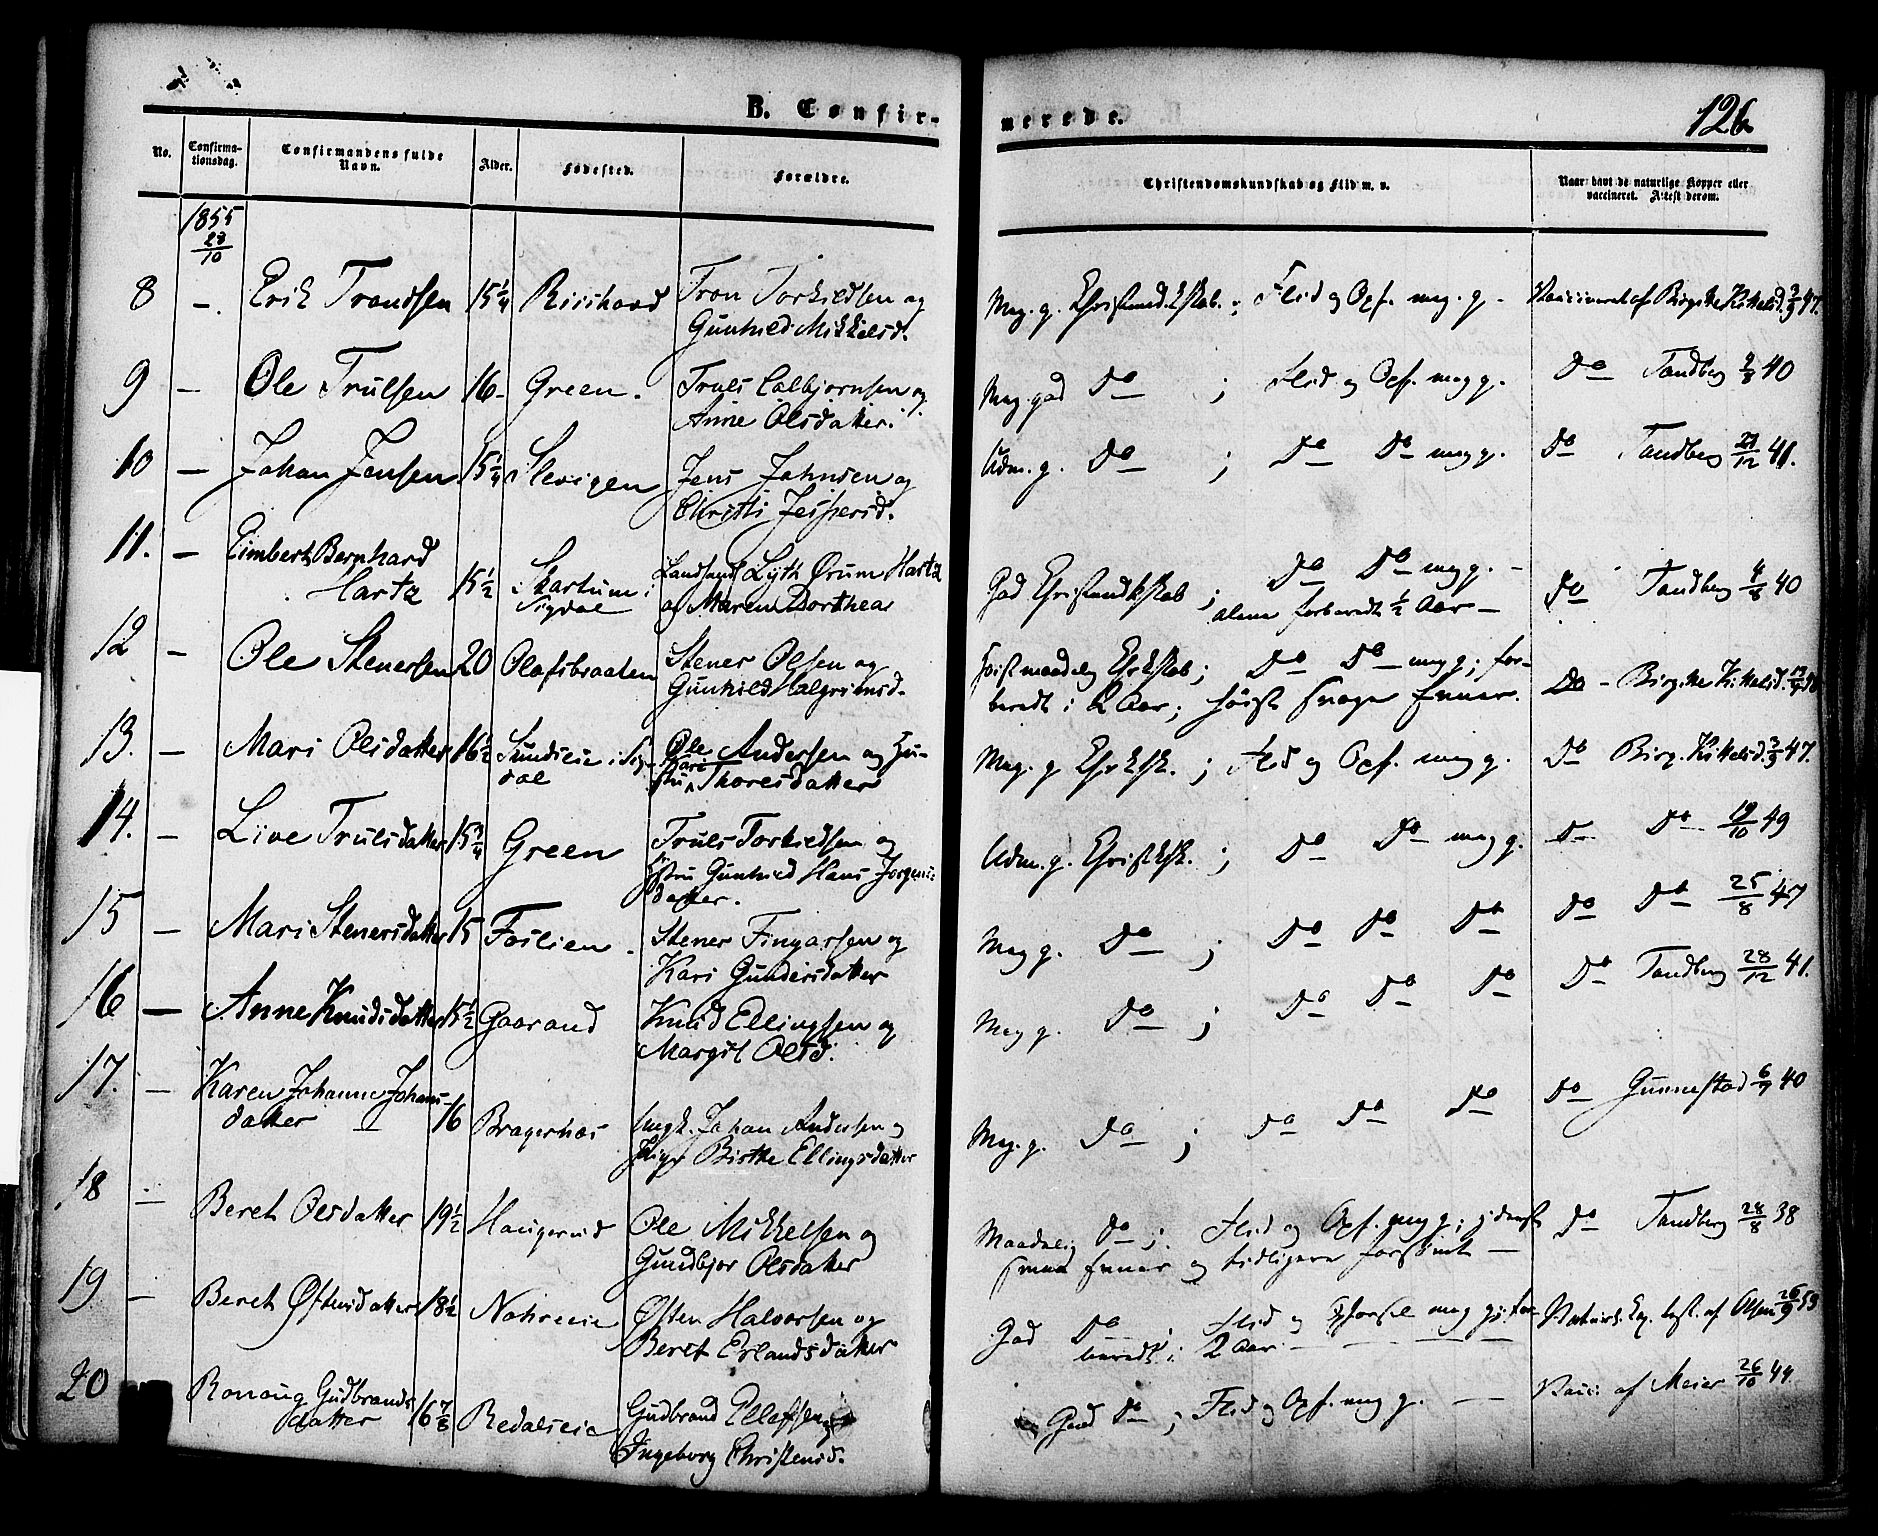 B. Confirmerede.
126
No.
Confirmationsdag.
Confirmandens fulde Navn.
Alder.
Fødested.
Forældre.
Christendomskundskab og Flid m. v.
Naar havt de naturlige Kopper eller vaccineret. Attest derom.
1855
28/10
8 - Erik Trondsen 15 1/4 Tron Torkildsen og
Gunhild Mikkelsd.
Meg. g. ; Flid og Opf. meg. g. - Vaccineret af 47.
9 - Ole Trulsen 16 - Green.
Anne Olsdatter.
Meg. god Do ; Flid og Opf. meg g. Do Tandberg 40
10 - Johan Jensen 15 1/4 Slevigen Jens Johnsen og
Christi Jespersd.
Udm. g. Do ; Do Do meg g. Do Tandberg 41.
11. - Bernhard
Hartz 15 1/2 i
Sigdal
Lyth Ørum Hartz
og Maren Dorthea
God ; Do Do meg g. -
alene forberedt 1/2 Aar - Do Tandberg 40
12 - Ole Stenersen 20 Olafsbraaten Stener Olsen og
Gunhild Halgrimsd.
; Do Do meg g; for-
beredt i 2 Aar; høist svage Evner. Do -
13. - Mari Olsdatter 16 1/2 i Sig-
dal
Ole Andersen og Hu-
stru Kari Thoresdatter
Meg. g. ; Flid og Opf. meg g. Do Birg. Kittelsd. 47.
14. - Live Trulsdatter 15 3/4 Green Truls Torkildsen og
Hstru Gunhild Hans Jorgens-
datter.
Udm. g. ; Do Do meg g. Do Do 49
15 - Mari Stenersdatter 15 Foslien. Stener Fingarsen og
Kari Gundersdatter
Meg g. Do ; Do Do Do Do Do 25/8 47
16 - Anne Knudsdatter 15 1/2 Gaarand Knud Ellingsen og
Margit Olsd.
Meg g. Do ; Do Do Do Do Tandberg 28/12 41.
17. - Karen Johanne Johans-
datter 16 Bragernæs Ungk. Johan Andersen og
Pige Birthe Ellingsdatter
Meg. g. Do ; Do Do Do Do Gunnestad 40
18 - Beret Olsdatter 19 1/2 Ole Mikkelsen og
Gundbjor Olsdatter
Maadelig Do ; Flid og Opf. meg g;
smaa Evner og tidligere forsømt - Do Tandberg 28/8 38
19 - Beret Østensdatter 18 1/2 Østen Halvorsen og
Beret Erlandsdatter
God Do ; Flid og Opforsel meg g; for-
beredt i 2 Aar. 53
20 Ronoug Gudbrands
datter 16 7/8 Gudbrand Ellefsen og
Ingeborg Christensd.
God Do ; Flid og Opf. meg g. - Vacc: af Meier 26/10 44